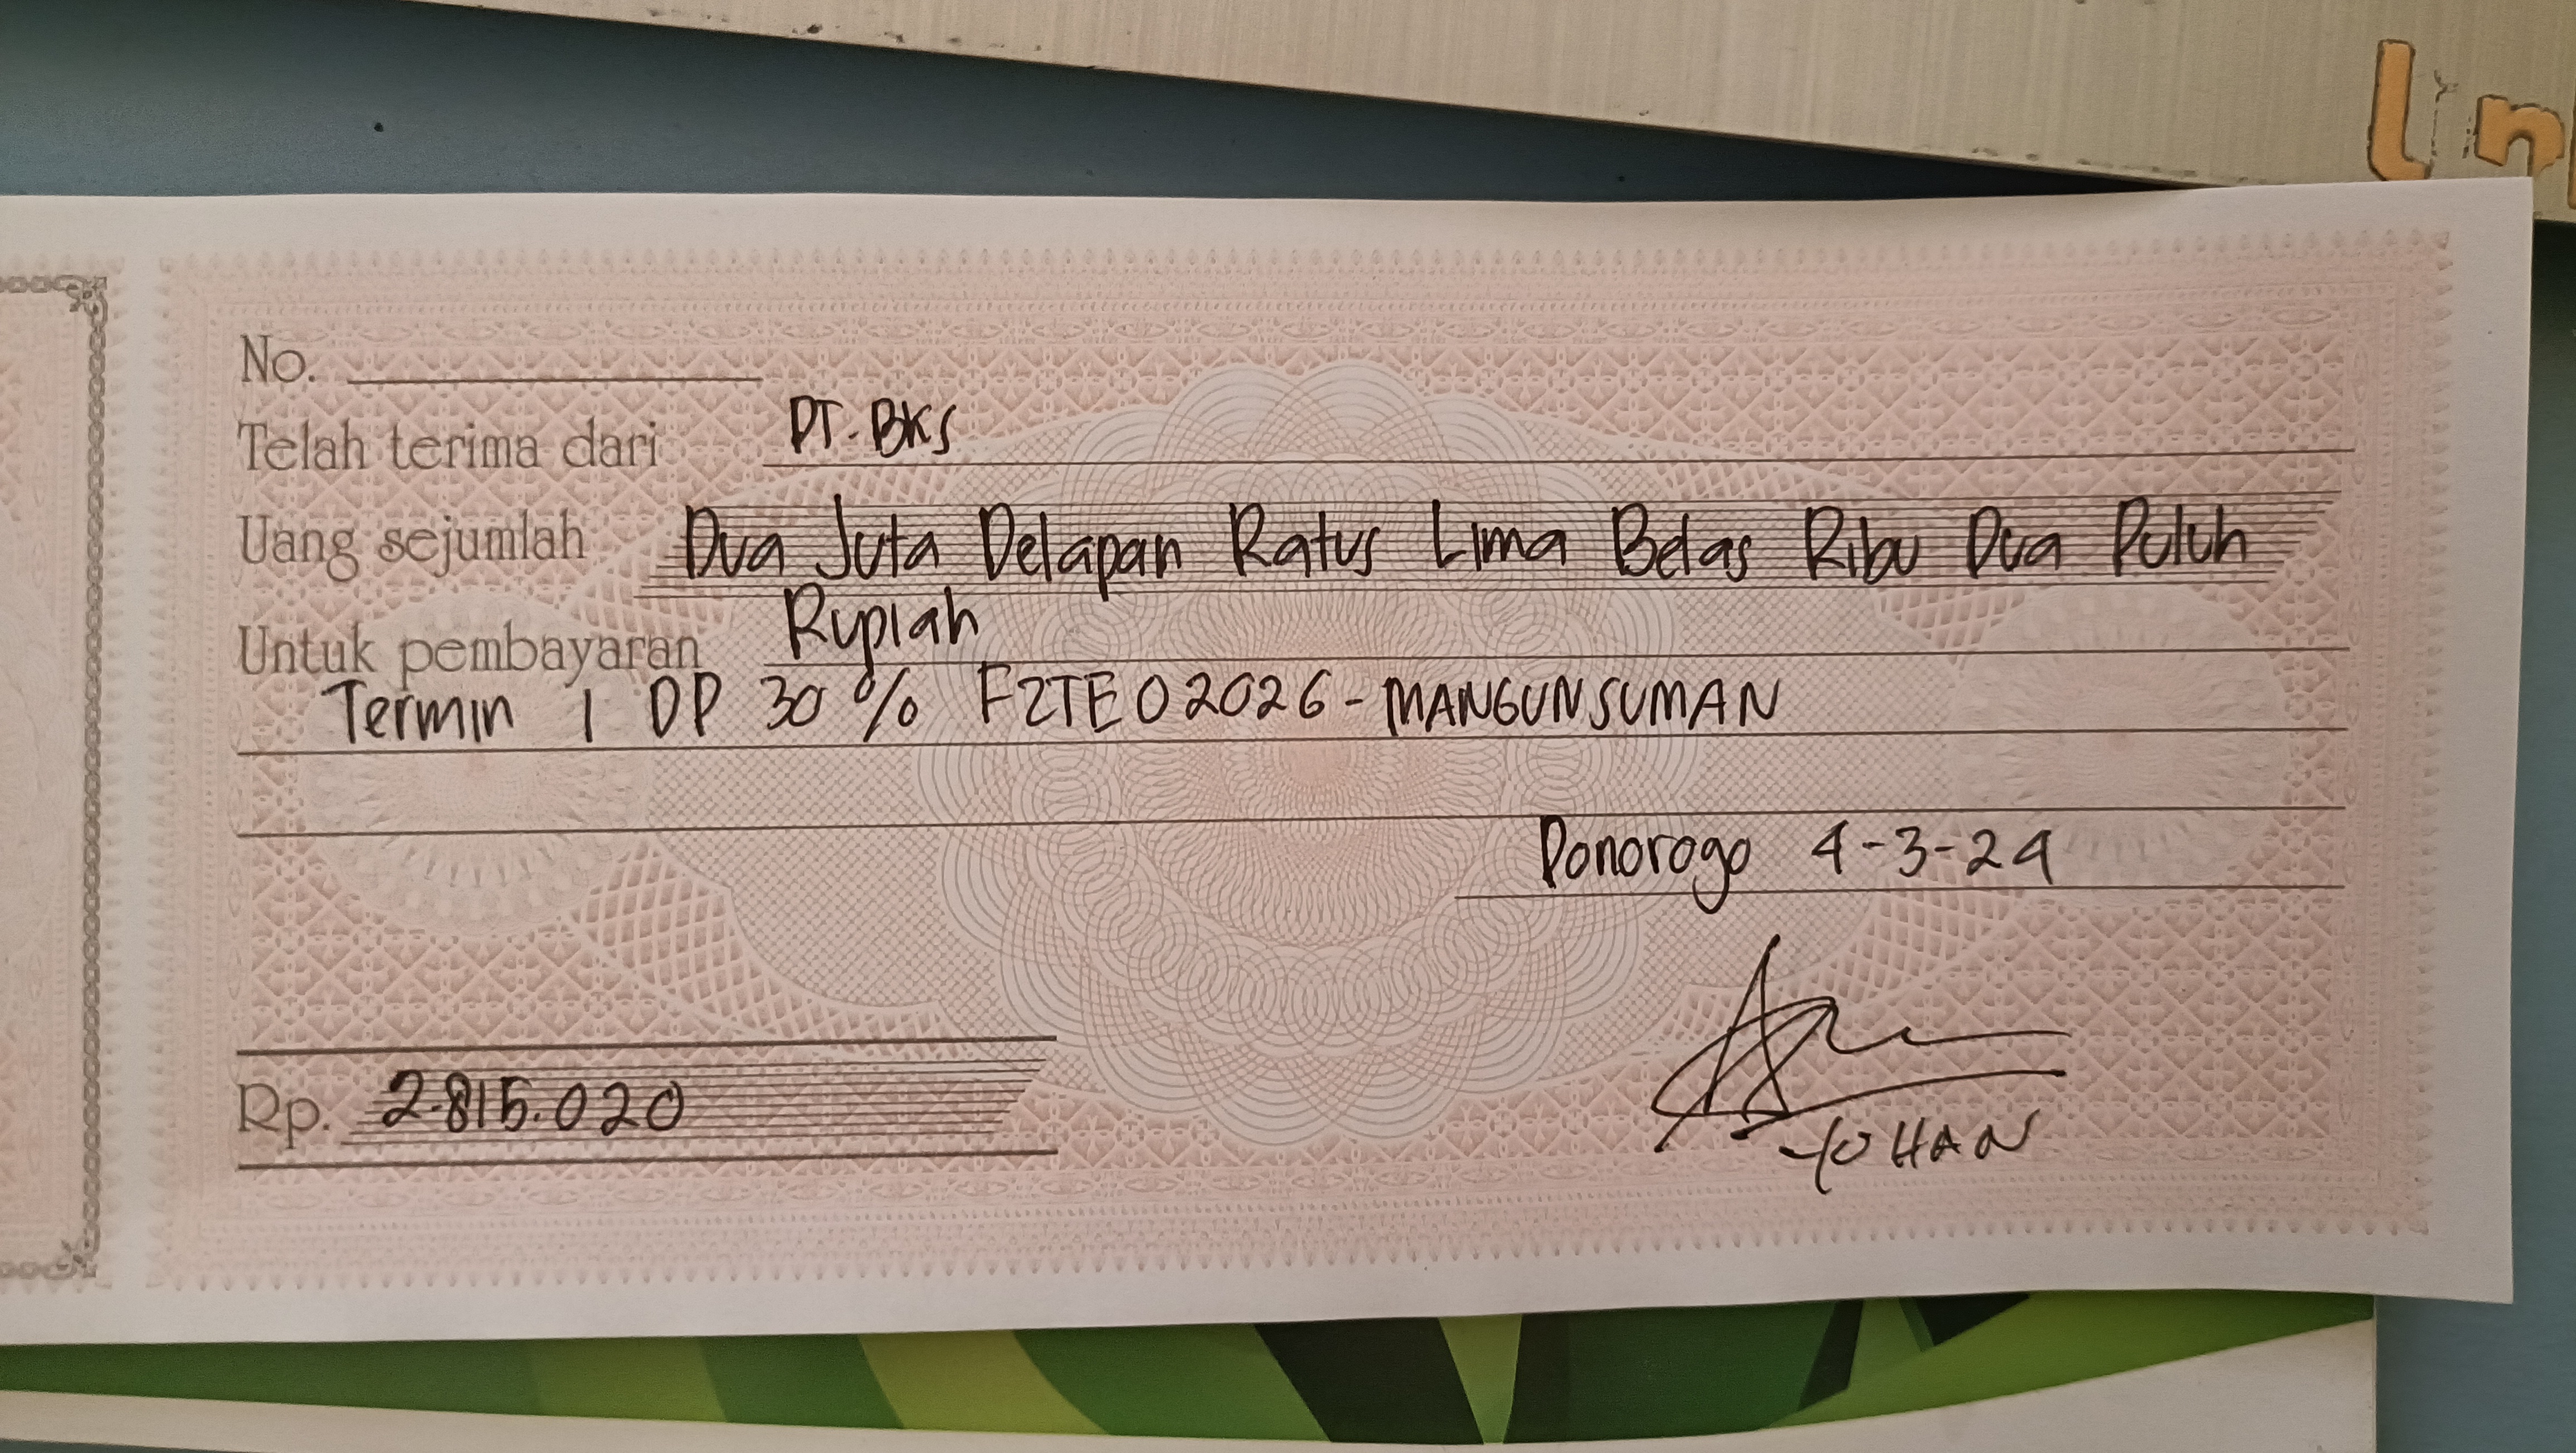 ln
No.
Telah terima dari PT. BKS
Uang sejumlah Dua Juta Delapan Ratus Lima Belas Ribu Dua Puluh
Rupiah
Untuk pembayaran
Termin 1 DP 30% F2TE02026-MANGUNSUMAN
Ponorogo 4-3-24
Rp. 2.815.020
YOHAN